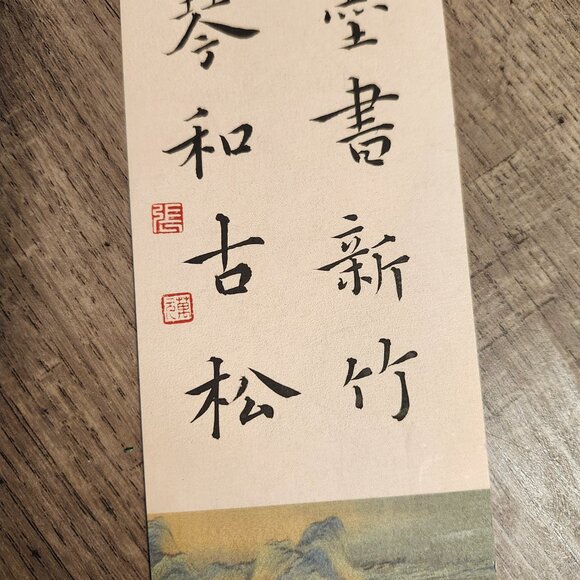 墨書新竹
琴和古松
張